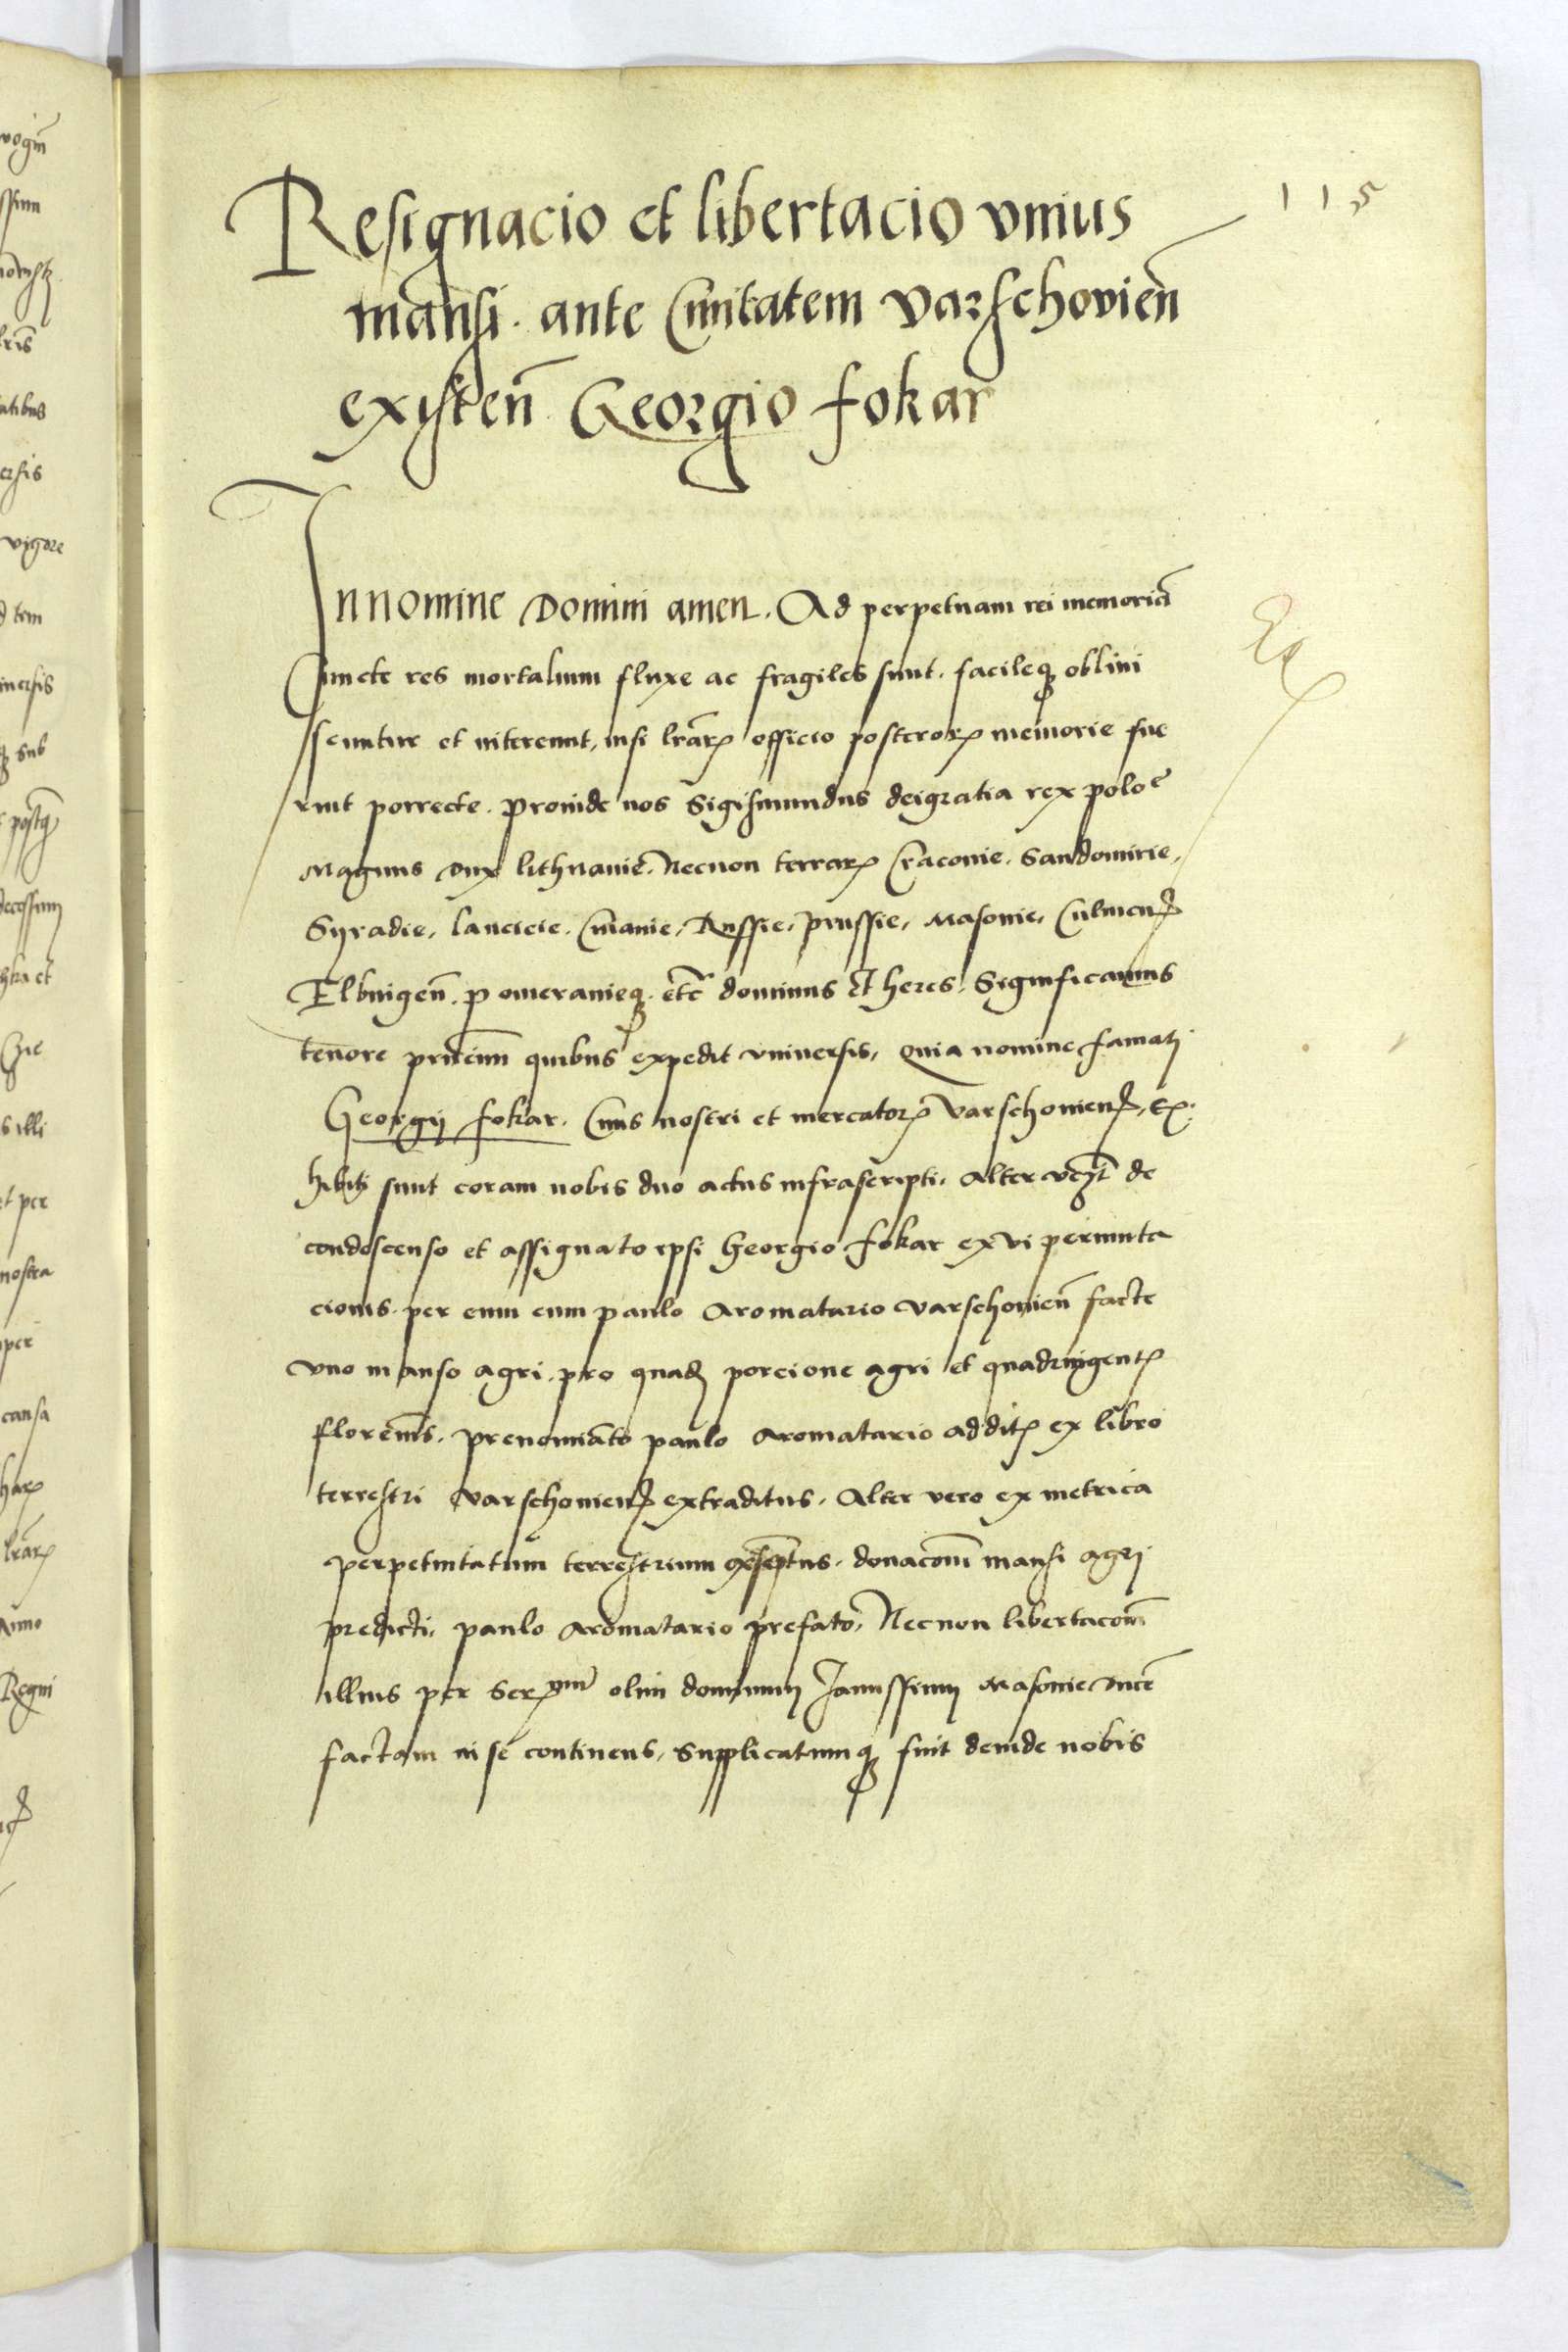 115
Resignacio et libertacio vnius
mansi. ante Ciuitatem varschouien̄
existen̄ Georgio fokar
In nomine Domini amen. Ad perpetuam rei memoriā
Cuncte res mortalium fluxe ac fragiles sunt. facileqꝫ obliui
scuntur et intereunt, nisi lr̄arꝝ officio posterorꝝ memorie fue
rint porrecte. Proinde nos Sigismundus dei gratia rex polo͞e
Magnus dux lithuanie. Necnon terrarꝝ Craconie. Sandomirie,
Syradie, lancicie. Cuiauie, Russie, prussie, Masouie, Culmen̄
Elbingen̄. pomeranieqꝫ. etc̄ dominus et heres. Significamus
tenore pn̄tium quibus expedit vniuersis, Quia nomine famati
Georgij fokar. Ciuis nostri et mercatorꝭ Varschouien̄, Ex
hibiti sunt coram nobis duo actus infrascripti. Alter vcꝫt de
condescenso et assignato ipsi Georgio fokar ex vi permuta
cionis. per eum cum paulo Aromatario varschouien̄ facte
vno manso agri. pro quadā porcione agri et quadringentꝭ
florenis. prenominato paulo Aromatario additꝭ ex libro
terrestri varschouien̄ extraditus. Alter vero ex metrica
perpetuitatum terrestrium donacōm mansi agri
predicti, paulo Aromatario prefato, Necnon libertacōm
illius per Ser͞mum olim dominum Janussium Masouie ducē
factam in se continens, Supplicatumqꝫ fuit deinde nobis